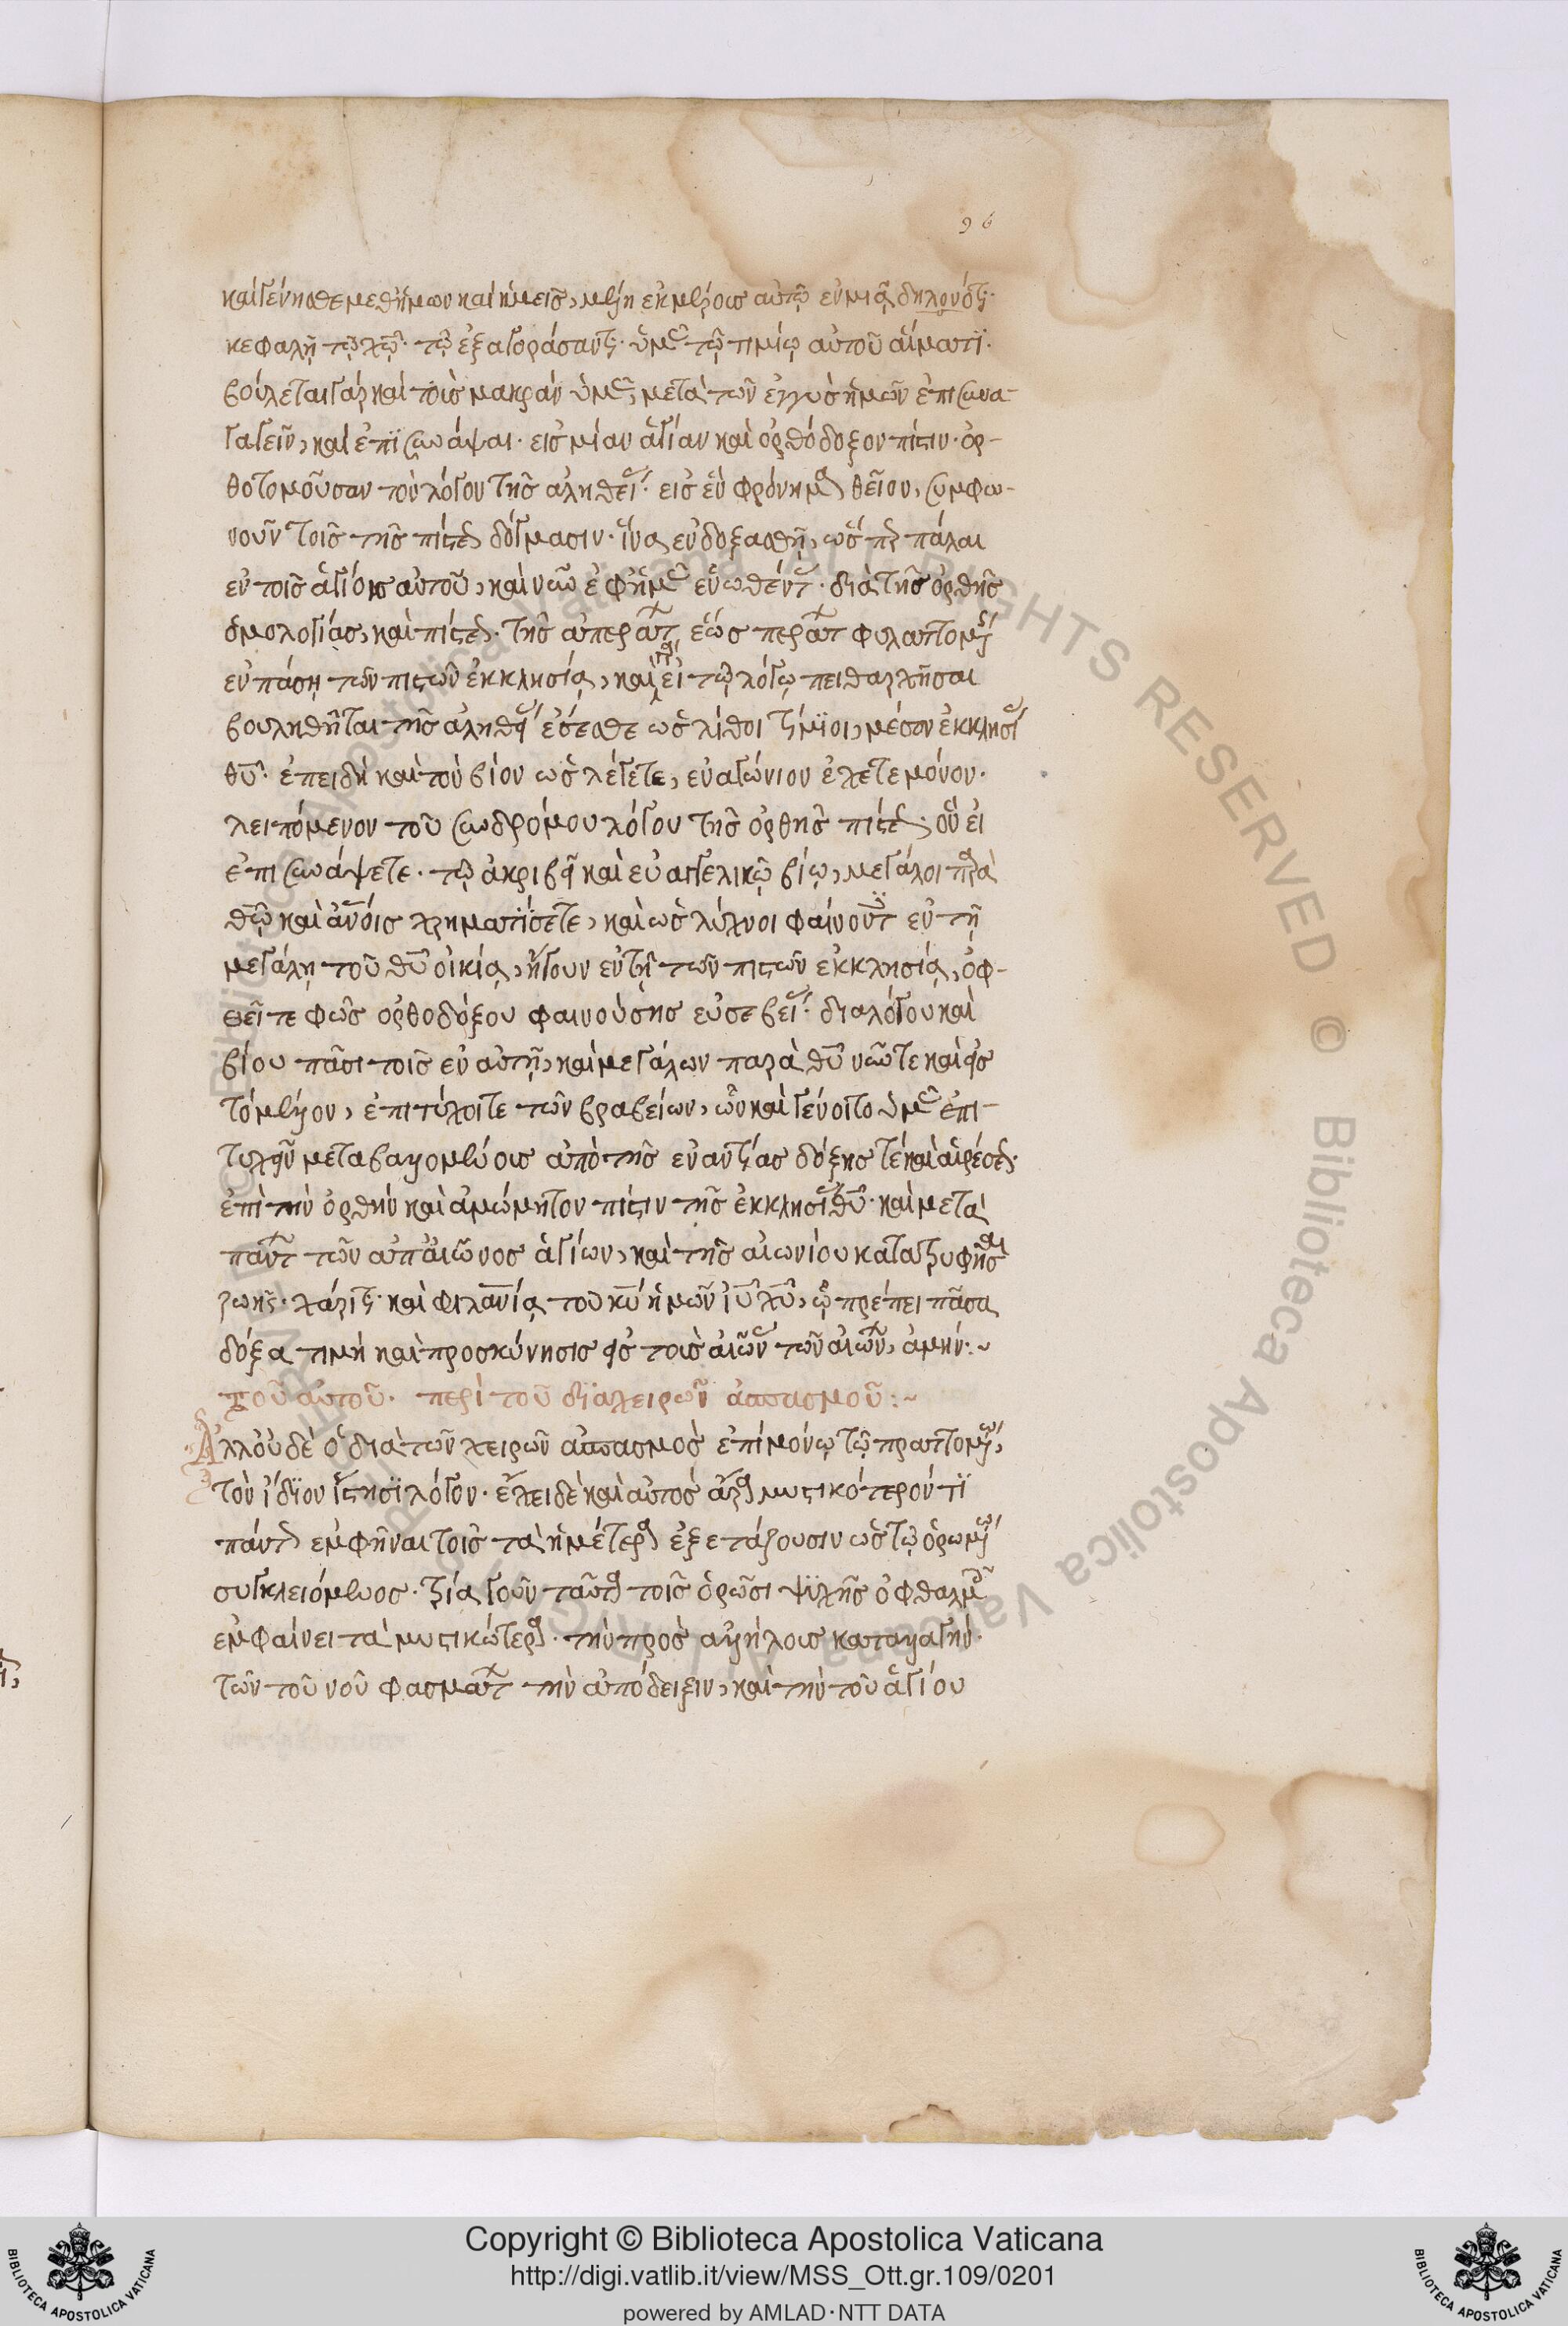 96
καὶ γένησθε μεθ' ἡμῶν καὶ ἡμεῖς, μέλη ἐκ μέρους αὐτῷ ἐν μιᾷ δηλονότι
κεφαλῇ τῷ χῷ· τῷ ἐξαγοράσαντι ὑμᾶς τῷ τιμίῳ αὐτοῦ αἵματι·
βούλεται γὰρ καὶ τοὺς μακρὰν ὑμᾶς, μετὰ τῶν ἐγγὺς ἡμῶν ἐπισυνα-
γαγεῖν, καὶ ἐπισυνάψαι· εἰς μίαν ἁγίαν καὶ ὀρθόδοξον πίστιν· ὀρ-
θοτομοῦσαν τὸν λόγον τῆς ἀληθείας· εἰς ἓν φρόνημα θεῖον, συμφω-
νοῦν τοῖς τῆς πίστεως δόγμασιν· ἵνα ἐνδοξασθῇ, ὥσπερ πάλαι
ἐν τοῖς ἁγίοις αὐτοῦ, καὶ νῦν ἐφ' ἡμᾶς ἑνωθέντας· διὰ τῆς ὀρθῆς
ὁμολογίας, καὶ πίστεως· τῆς ἀπὸ περάτων ἕως περάτων φυλαττομένης
ἐν πάσῃ τῶν πιστῶν ἐκκλησίᾳ, καὶ εἰ τῷ λόγῳ πειθαρχῆσαι
βουληθῆται τῆς ἀληθείας ἔσεσθε ὡς λίθοι τίμιοι, μέσον ἐκκλησίας
θυ· ἐπειδὴ καὶ τὸν βίον ὡς λέγετε, ἐναγώνιον ἔχετε μόνον·
λειπόμενον τοῦ συνδρόμου λόγου τῆς ὀρθῆς πίστεως· ὃν εἰ
ἐπισυνάψετε· τῷ ἀκριβεῖ καὶ εὐαγγελικῷ βίῳ, μεγάλοι παρὰ
θῷ καὶ ἀνοις χρηματίσετε, καὶ ὡς λύχνοι φαίνοντες ἐν τῇ
μεγάλῃ τοῦ θυ οἰκίᾳ, ἤγουν ἐν τῇ τῶν πιστῶν ἐκκλησίᾳ, ὀφ-
θεῖτε φῶς ὀρθοδόξου φαινούσης εὐσεβείας· διὰ λόγου καὶ
βίου πᾶσι τοῖς ἐν αὐτῇ, καὶ μεγάλων παρὰ θυ νῦν τε καὶ εἰς
τὸ μέλλον, ἐπιτύχοιτε τῶν βραβείων, ὧν καὶ γένοιτο ὑμᾶς ἐπι-
τυχεῖν μεταβαλλομένους ἀπὸ τῆς ἐναντίας δόξης τὲ καὶ αἱρέσεως·
ἐπὶ τὴν ὀρθὴν καὶ ἀμώμητον πίστιν τῆς ἐκκλησίας θυ· καὶ μετὰ
πάντων τῶν ἀπ' αἰῶνος ἁγίων, καὶ τῆς αἰωνίου κατατρυφῆσαι
ζωῆς· χάριτι καὶ φιλανίᾳ τοῦ κυ ἡμῶν ιυ χυ, ᾧ πρέπει πᾶσα
δόξα τιμὴ καὶ προσκύνησις εἰς τοὺς αἰῶνας τῶν αἰώνων, ἀμήν:~
Τοῦ αὐτοῦ· περὶ τοῦ διὰ χειρῶν ἀσπασμοῦ:~
Ἀλλ' οὐδὲ ὁ διὰ τῶν χειρῶν ἀσπασμὸς ἐπὶ μόνῳ τῷ πραττομένῳ,
τὸν ἴδιον ἵστησι λόγον· ἔχει δὲ καὶ αὐτὸς ἄρα μυστικότερόν τι
πάντως ἐμφῆναι τοῖς τὰ ἡμέτερα ἐξετάζουσιν ὡς τῷ ὁρωμένῳ
συγκλειόμενος· τρία γοῦν ταῦτα τοῖς ὁρῶσι ψυχῆς ὀφθαλμοῖς
ἐμφαίνει τὰ μυστικώτερα· τὴν πρὸς ἀλλήλους καταλλαγήν·
τῶν τοῦ νοῦ φασμάτων τὴν ἀπόδειξιν, καὶ τὴν τοῦ ἁγίου
Copyright © Biblioteca Apostolica Vaticana
http://digi.vatlib.it/view/MSS_Ott.gr.109/0201
powered by AMLAD·NTT DATA
BIBLIOTECA APOSTOLICA VATICANA
BIBLIOTECA APOSTOLICA VATICANA